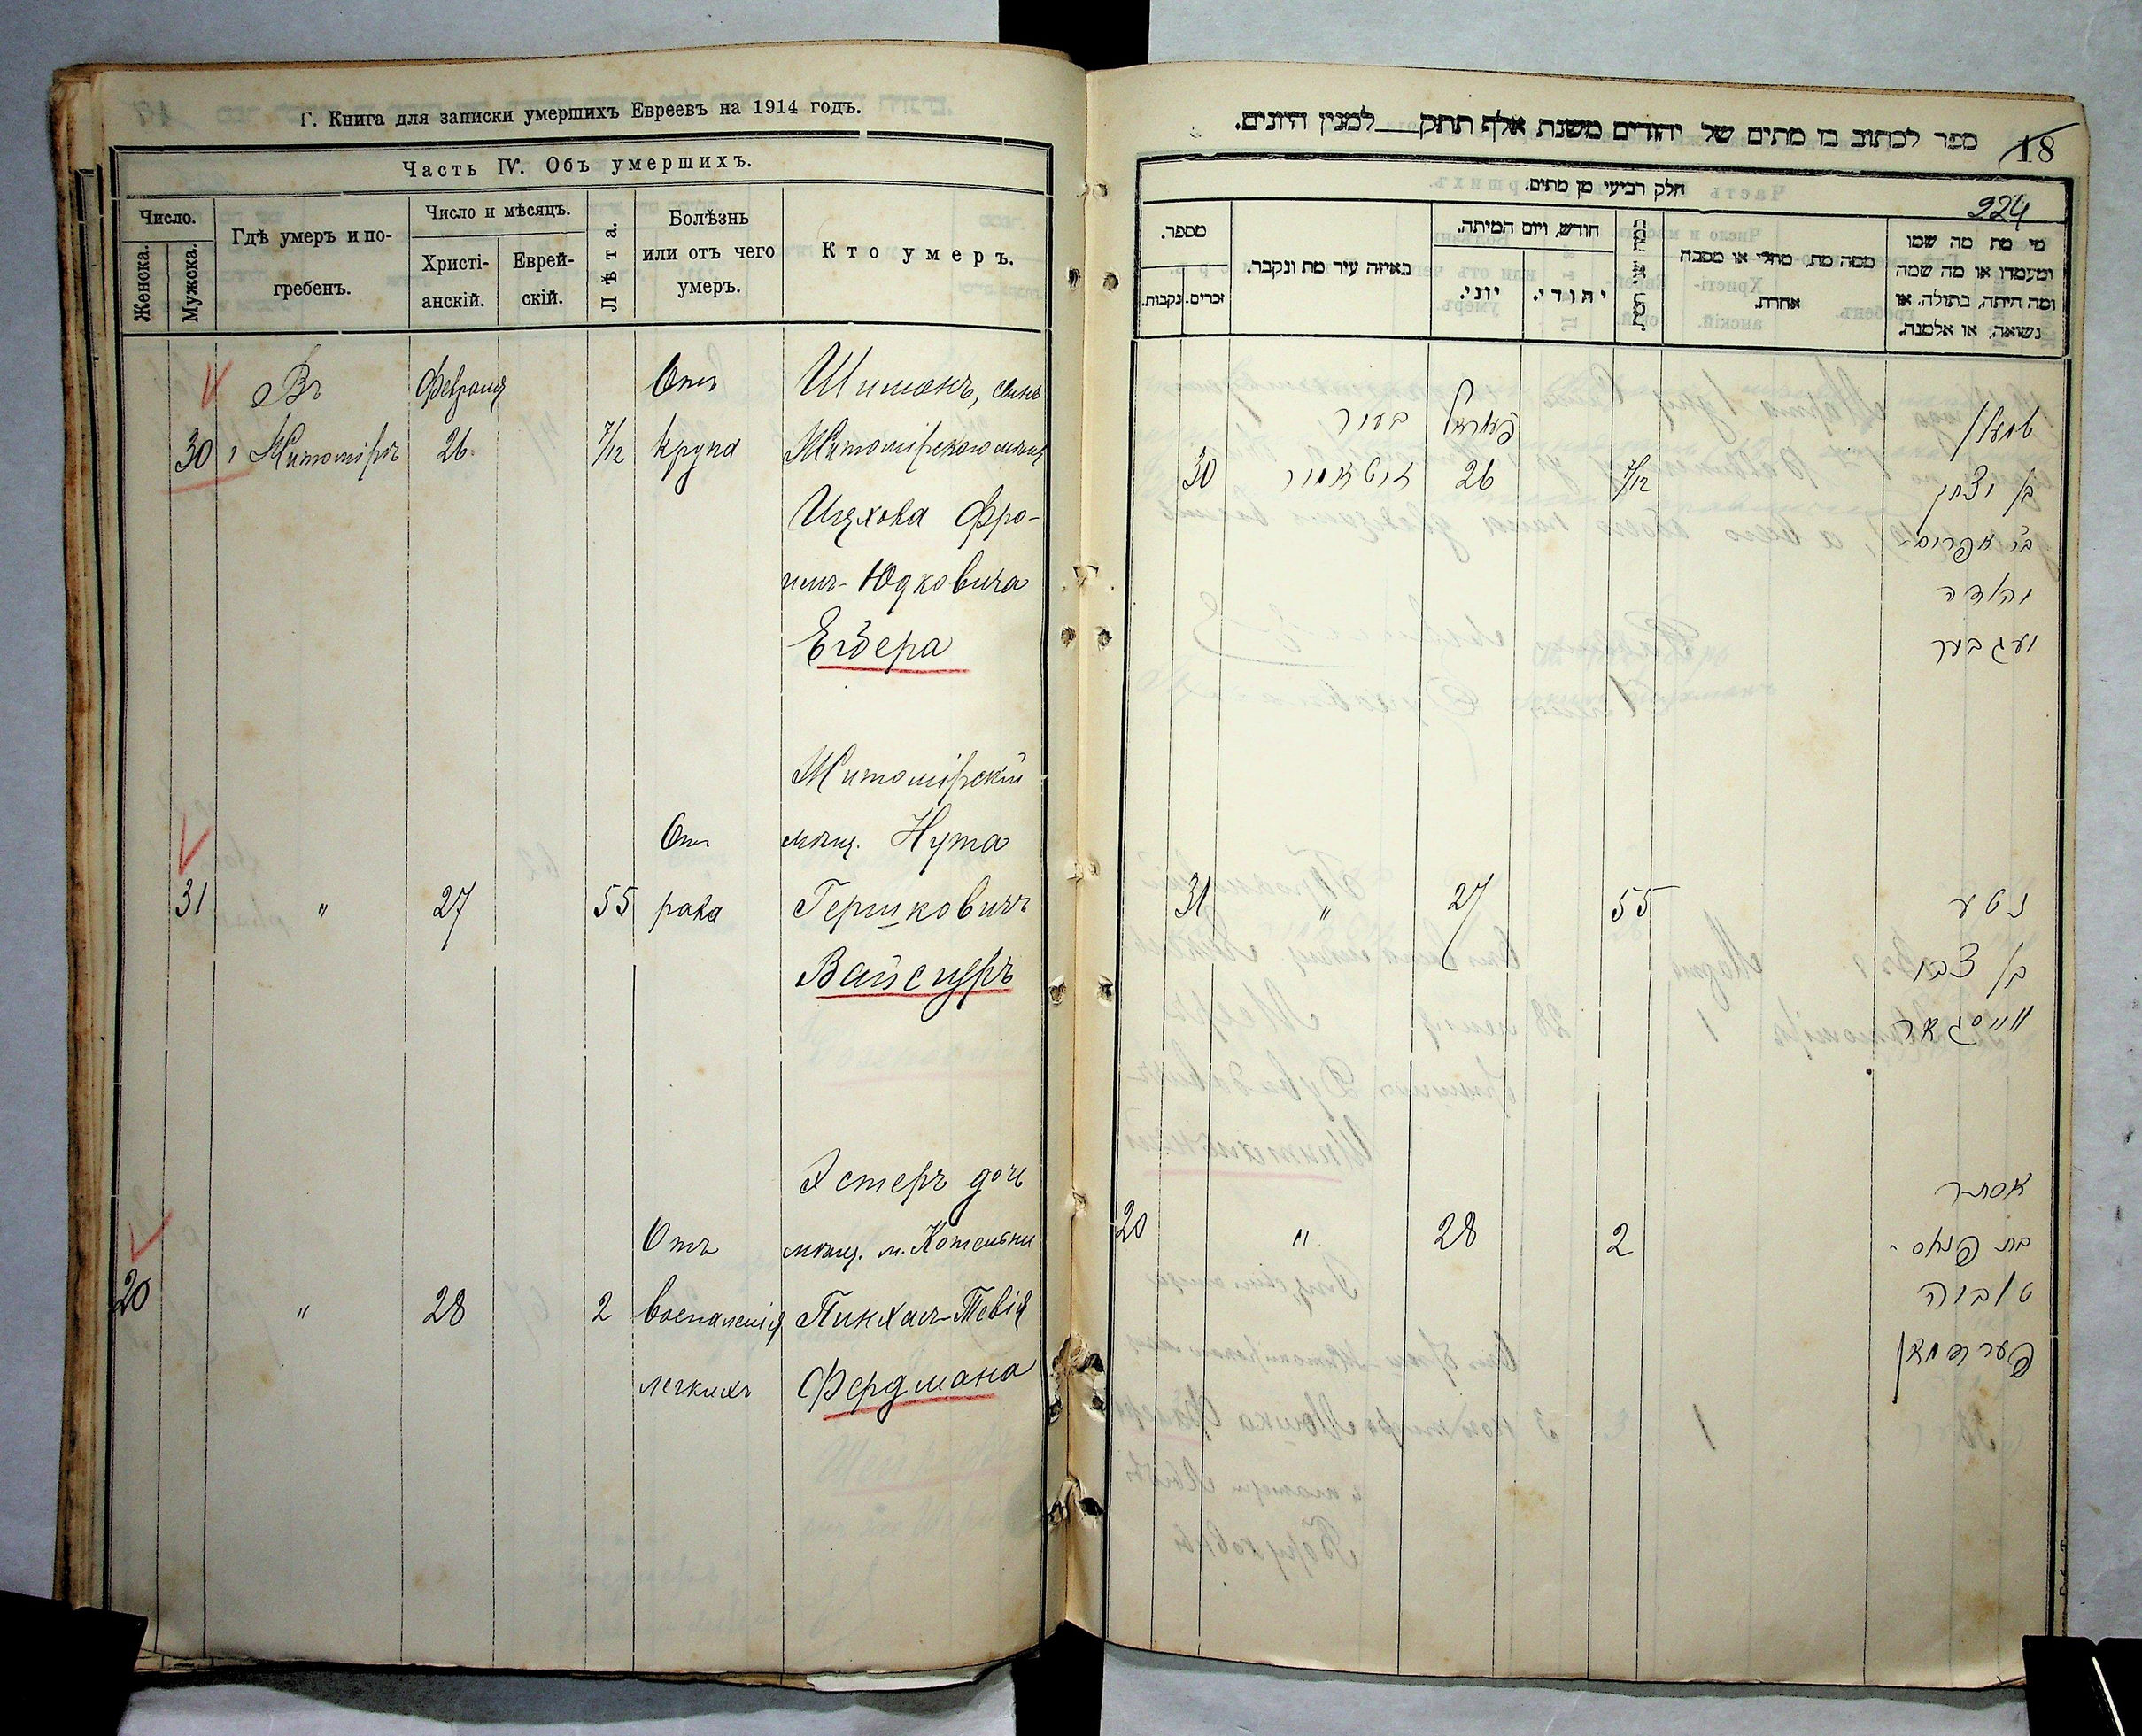 Г. Книга для записки умершихъ Евреевъ на 1914 годъ.
Часть IV. Объ умершихъ.
Число.
Женска.
Мужска.
Гдѣ умеръ и по-
гребенъ.
Число и мѣсяцъ.
Христі-
анскій.
Еврей-
скій.
Лѣта.
Болѣзнь
или отъ чего
умеръ.
Кто умеръ.
Въ Февраля Отъ Шимонъ, сынъ
30 г Житомірѣ 26 7/12 крупа Житомірского мѣщ
Ицхока Фро-
имъ-Юдковича
Житомірскій
Отъ мѣщ. Нута
31 " 27 55 рака Гершковичъ
Вайсцугръ
Эстеръ дочь
Отъ мѣщ. м. Котельни
20 " 28 2 воспаленія Пинхасъ-Тевія
легкихъ Фердмана
ספר לכתוב בו מתים של יהודים משנת אלף תתק למנין היונים.
18
224
חלק רביעי מן מתים.
מספר.
נקבות.
זכרים.
באיזה עיר מת ונקבר.
חודש, ויום המיתה.
יוני.
יהודי.
ממה מת, מחלי או מסבה
אחרת.
מי מת מה שמו
ומעמדו או מה שמה
ומה היתה, בתולה, או
נשואה, או אלמנה.
שמעון
בעיר
30 זיטאמיר 26 7/12 בן יצחק
אפרים
יהודה
31 " 27 55 נטע
בן צבי
אסתר
20 " 28 2 בת פנחס
טוביה
פערדמאן